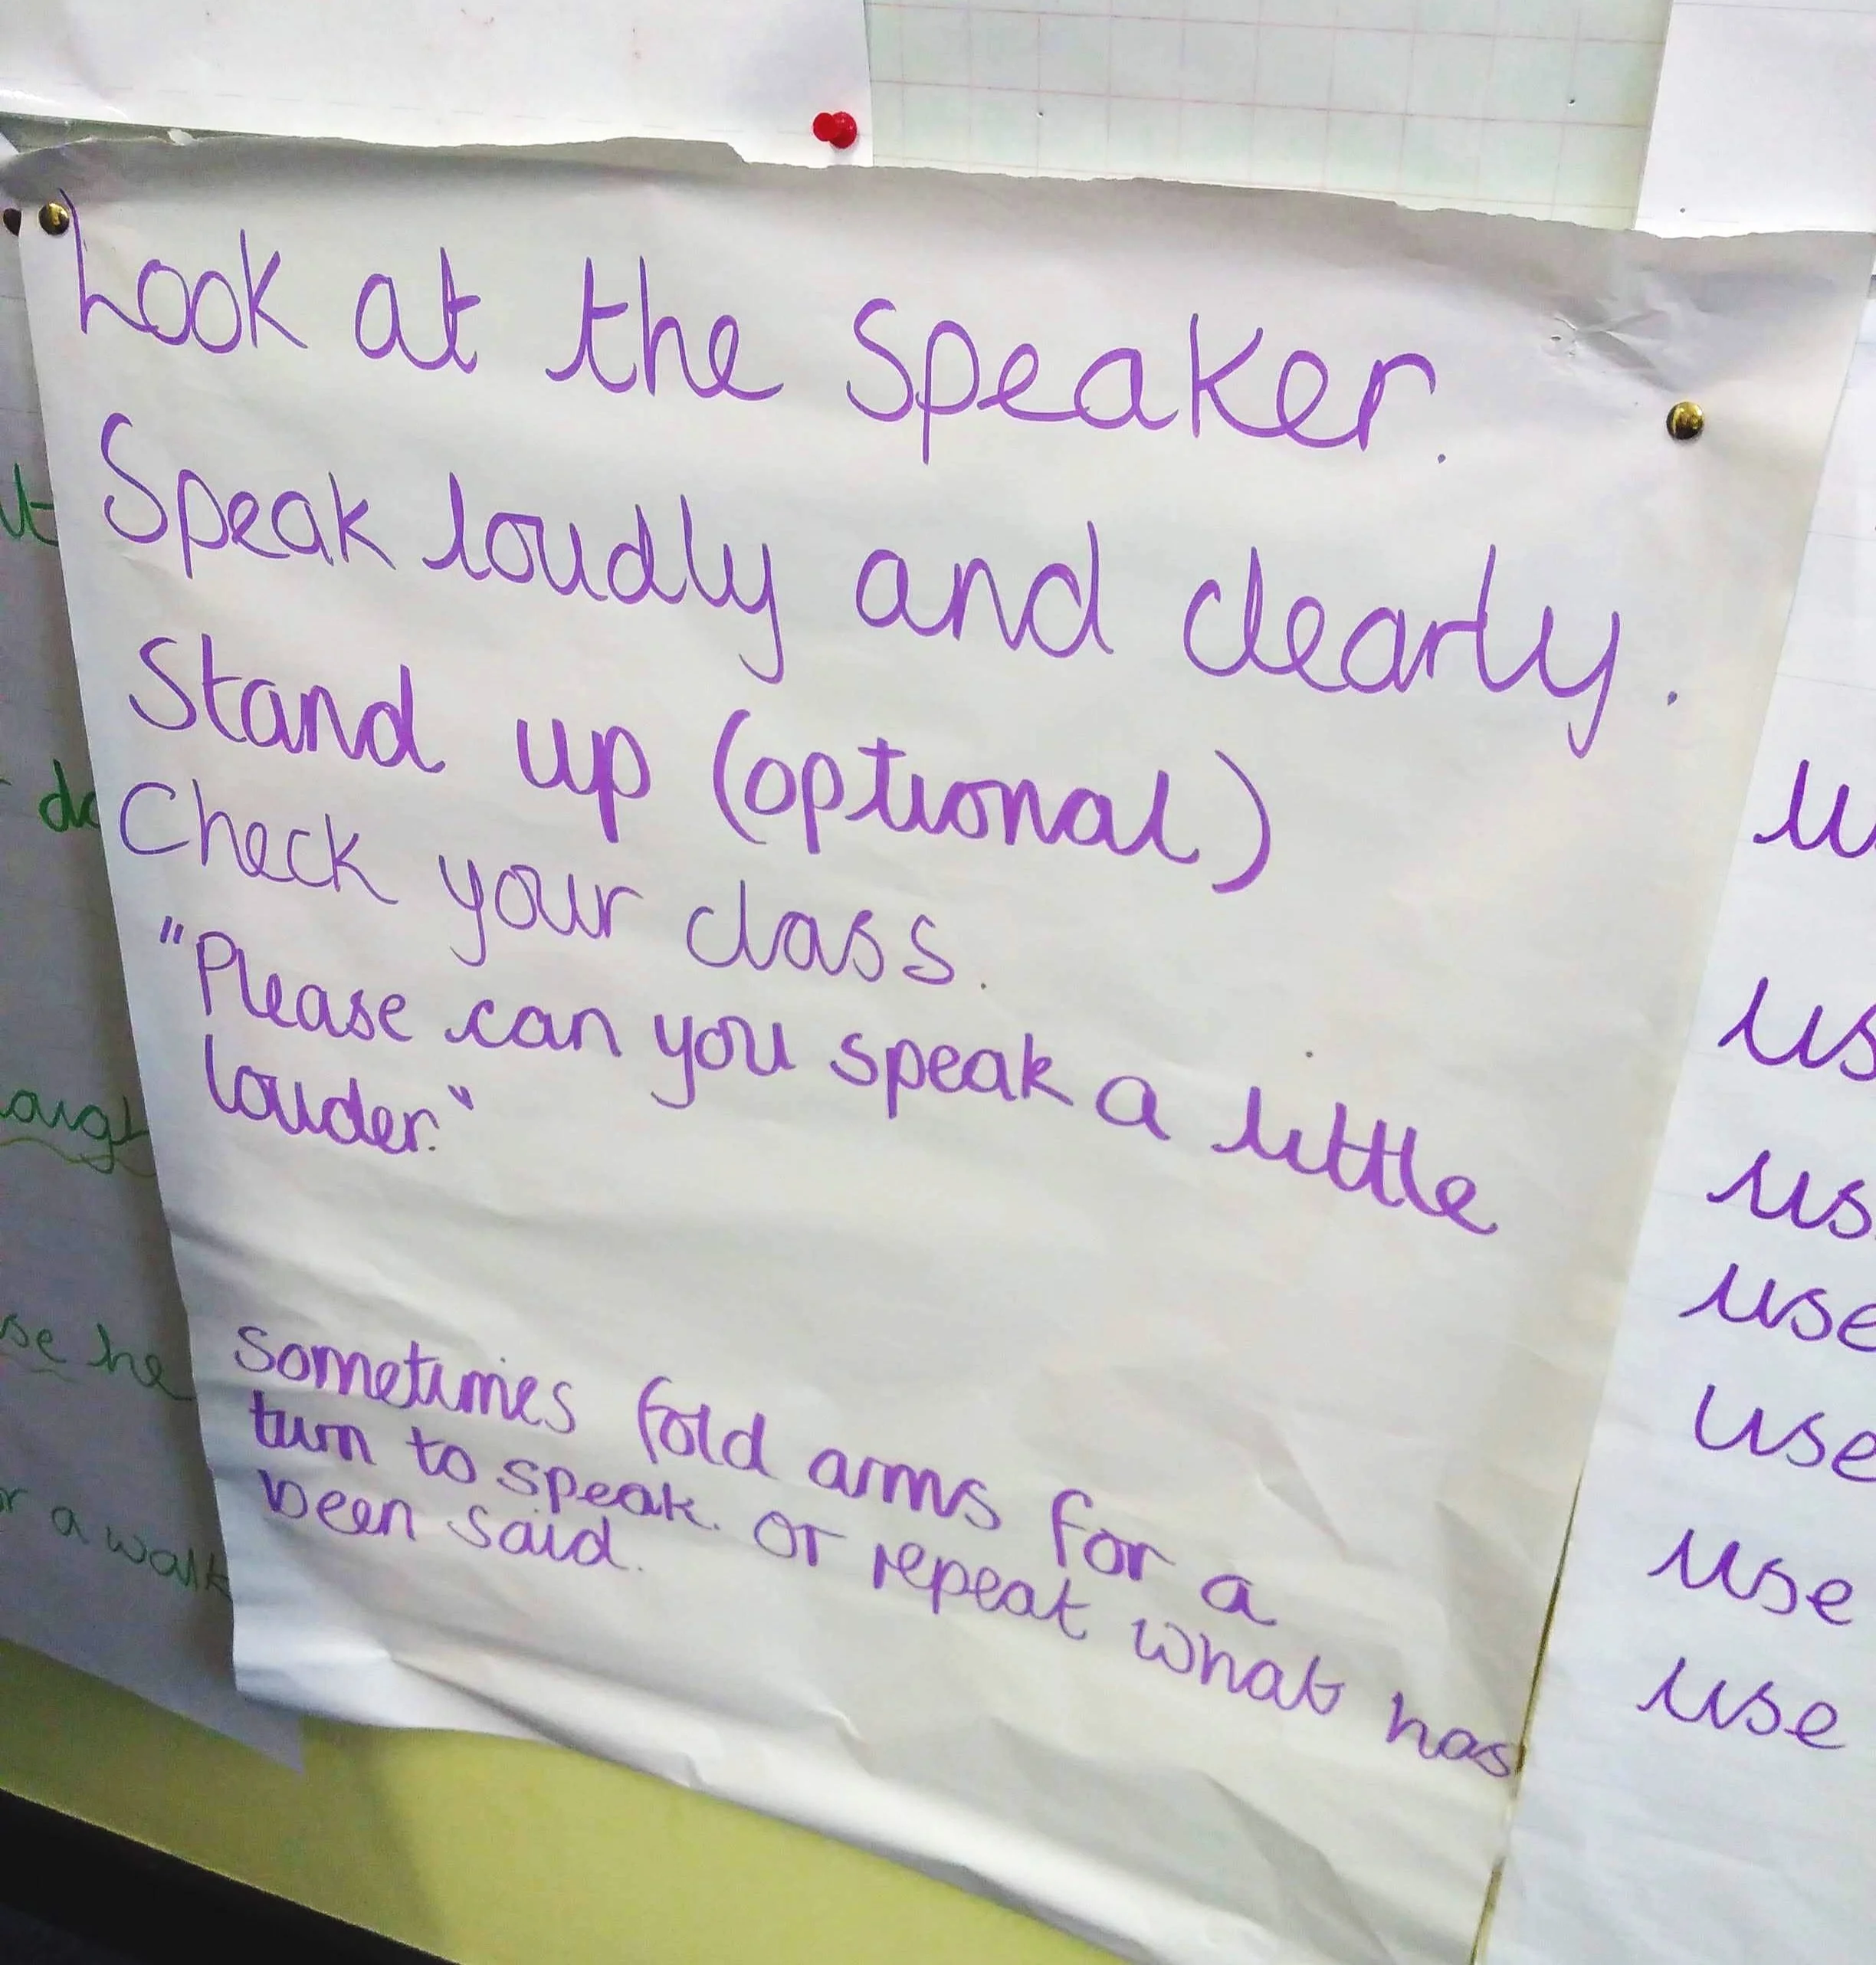 Look at the speaker.
Speak loudly and clearly.
Stand up (optional)
Check your class.
"Please can you speak a little
louder."
Sometimes fold arms for a
turn to speak. or repeat what has
been said.
se he
r a walk
use
use
use
use